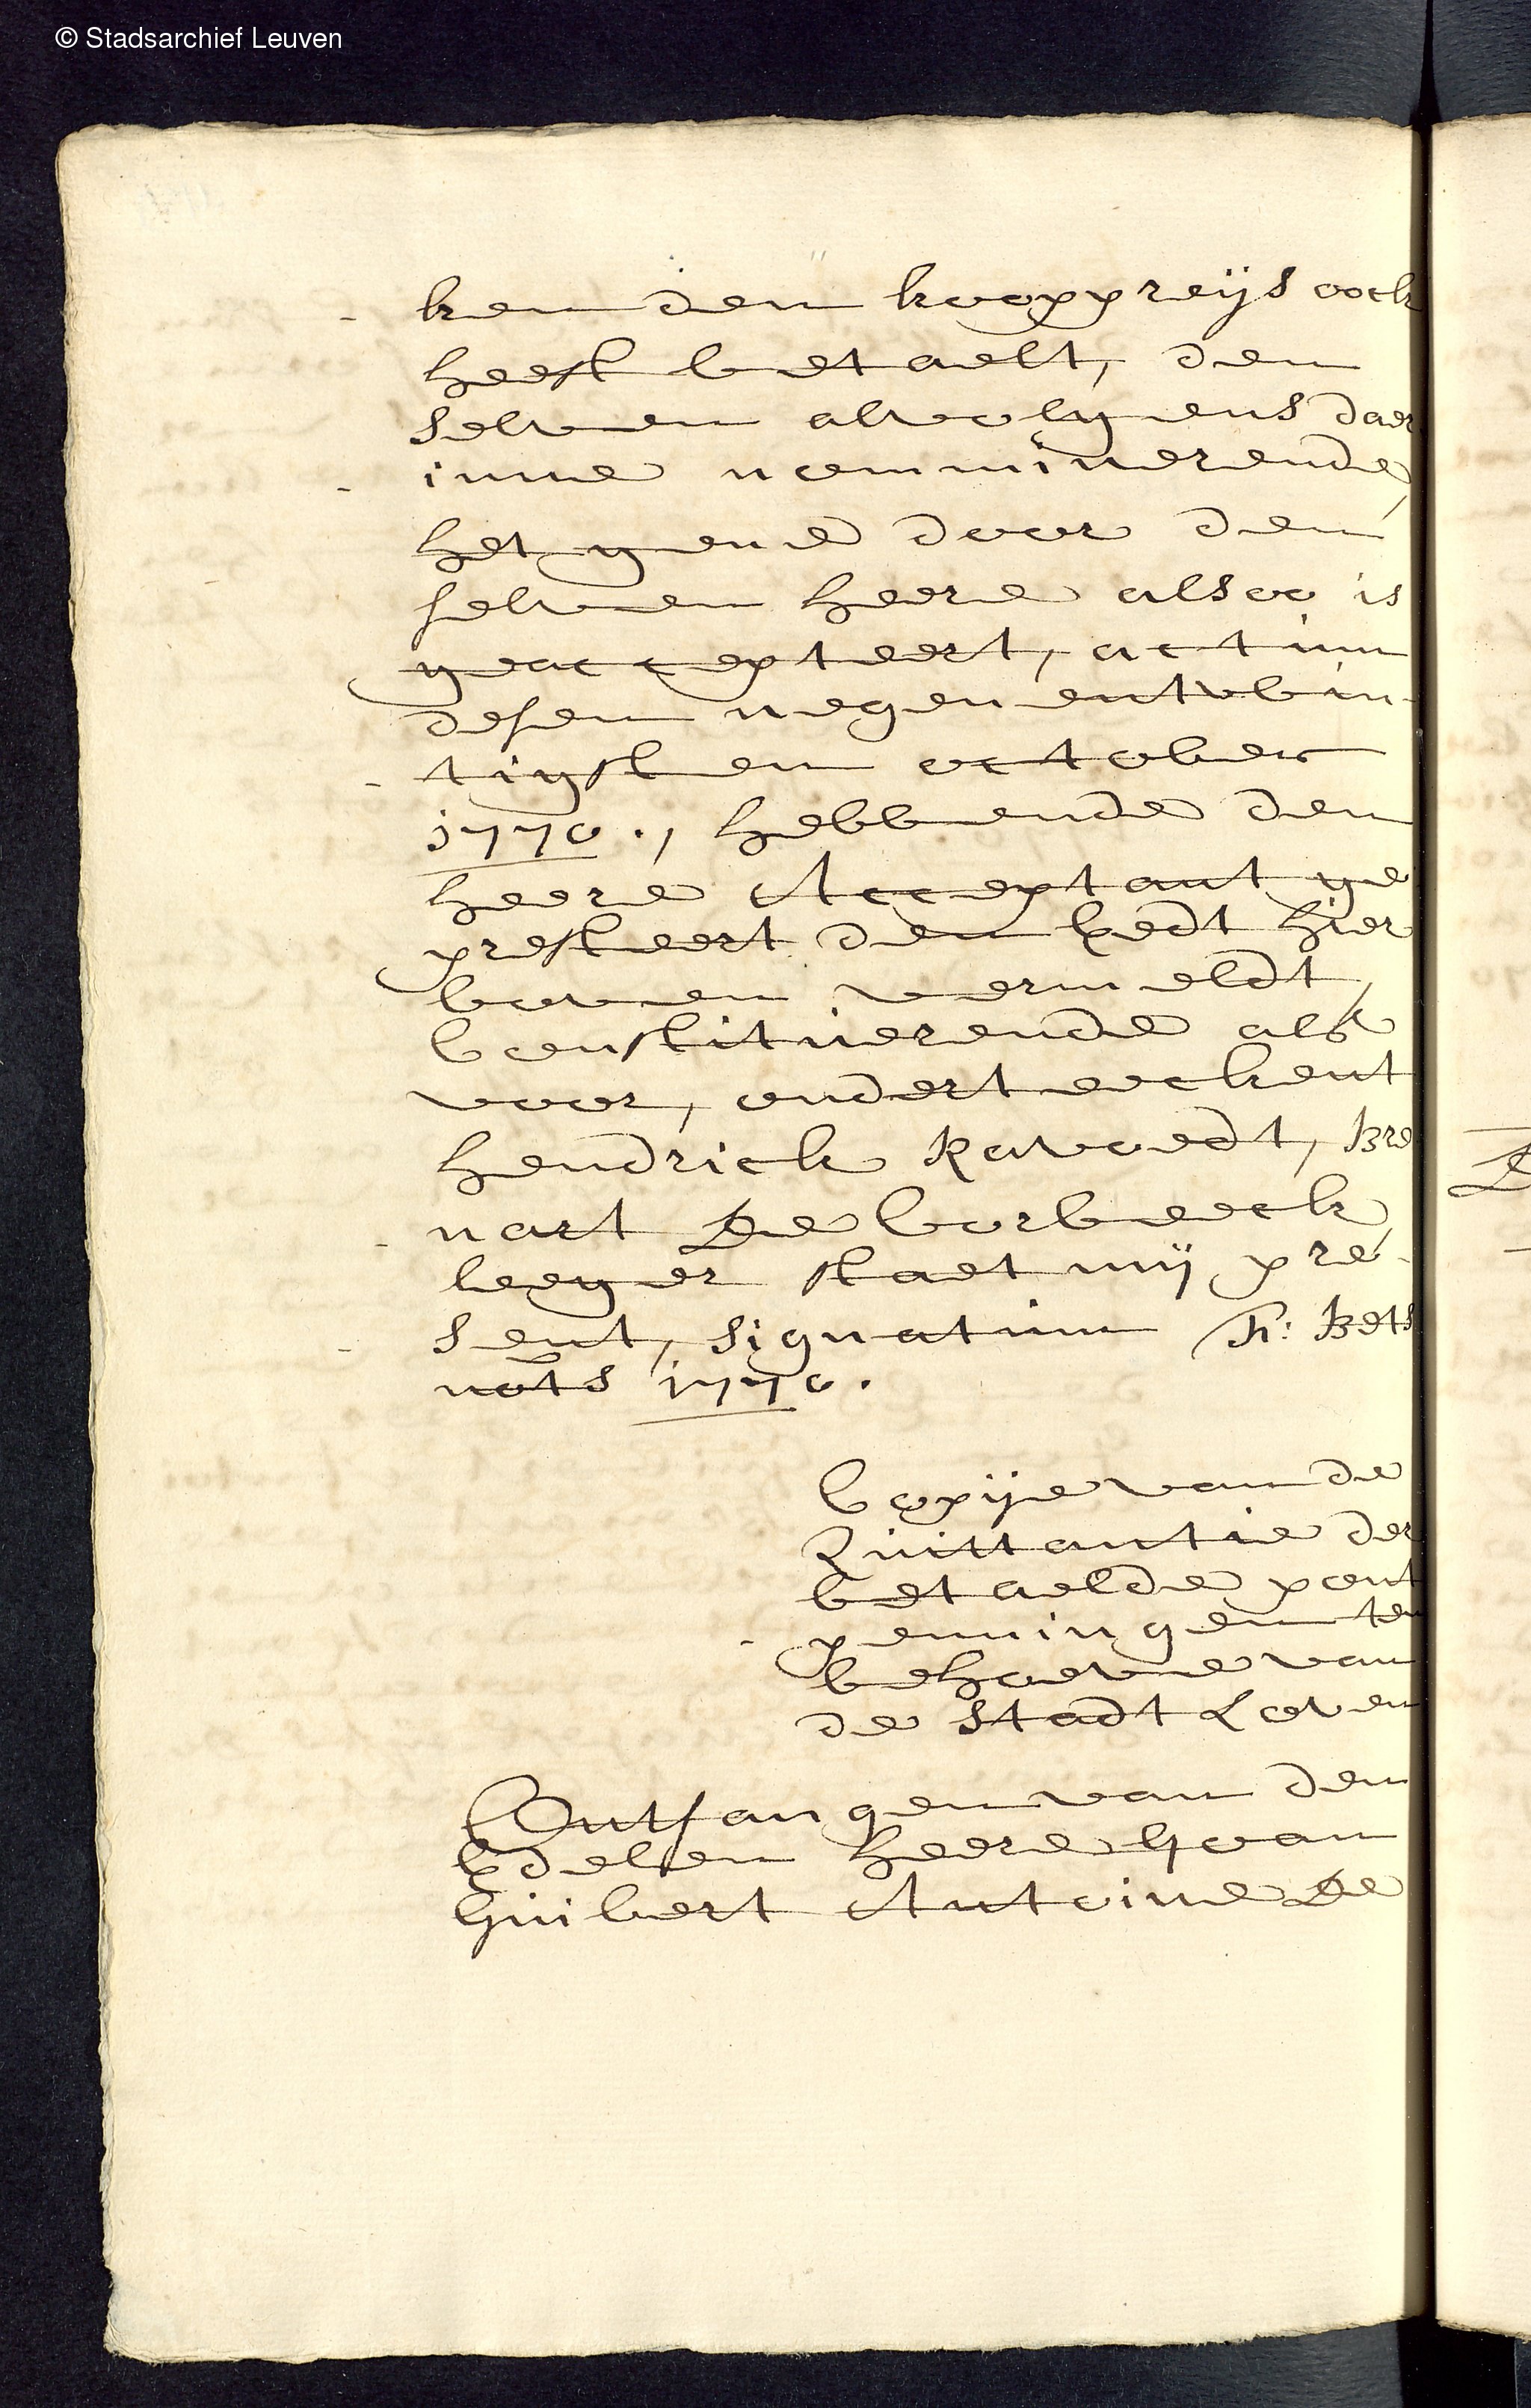 © Stadsarchief Leuven
ken den kooppreijs oock
heeft betaelt, den
selven alvolgens daer
inne nomminerende,
het gene door den
selven heere alsoo is
geaccepteert, actum
desen negenentwin-
tigsten october
1770., hebbende den
heere Acceptant ge
presteert den Eedt hier
boven vermeldt,
Constituerende als
voor, onderteeckent
Hendrick Ravoedt, Bre
nart De Corbeeck,
leeger staet mij pre-
sent, signatum Bets
nots 1770.
Copije van de
Quittantie der
betaelde pont
penningen ten
behoeve van
de Stadt Loven
Ontfangen van den
Edelen heere Joan
Guibert Antoine De